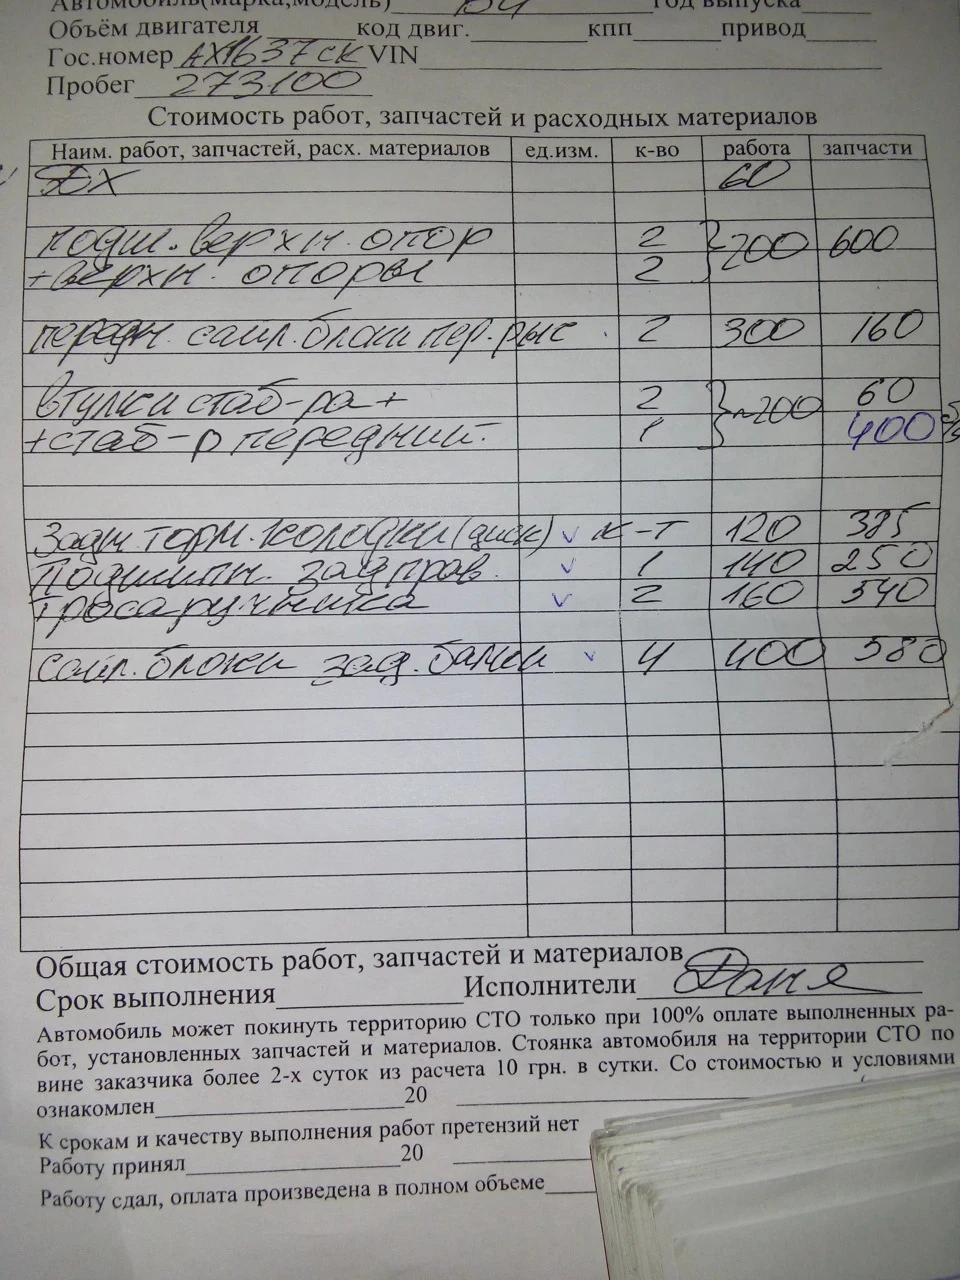 Автомобиль(марка,модель) B4 год выпуска
Объём двигателя код двиг. кпп привод
Гос.номер АХ1637СК VIN
Пробег 273100
Стоимость работ, запчастей и расходных материалов
Наим. работ, запчастей, расх. материалов ед.изм. к-во работа запчасти
ДХ 60
подш. верхн. опор 2 200 600
+верхн. опоры 2
передн. сайл.блоки пер.рыс 2 300 160
втулки стаб-ра + 2 ~200 60
+стаб-р передний. 1 400 б/у
Задн торм. колодки (диск) v к-т 120 385
Подшипн. зад прав. v 1 140 250
троса ручника v 2 160 540
сайл. блоки зад. балки v 4 400 580
Общая стоимость работ, запчастей и материалов
Срок выполнения Исполнители Даня
Автомобиль может покинуть территорию СТО только при 100% оплате выполненных ра-
бот, установленных запчастей и материалов. Стоянка автомобиля на территории СТО по
вине заказчика более 2-х суток из расчета 10 грн. в сутки. Со стоимостью и условиями
ознакомлен 20
К срокам и качеству выполнения работ претензий нет
Работу принял 20
Работу сдал, оплата произведена в полном объеме